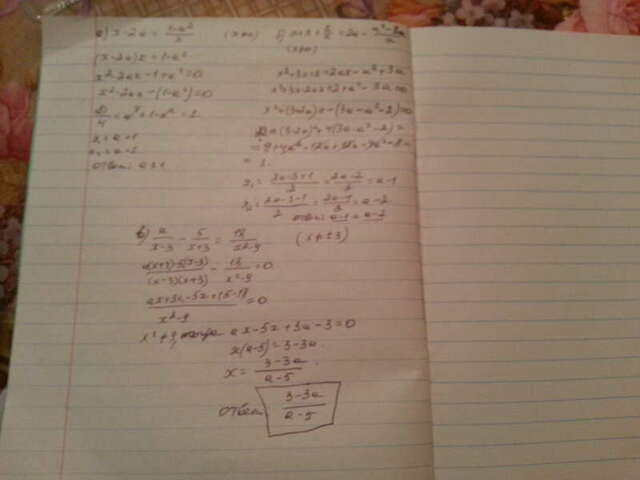 а) x-2a = (1-a²)/x (x≠0)
(x-2a)x = 1-a²
x²-2ax-1+a²=0
x²-2ax-(1-a²)=0
D/4 = a²+1-a² = 1
x = a+1
x₂ = a-1
Ответ: a±1
(x≠0)
x²+3x+2=2ax-a²+3a
x²+3x-2ax+2+a²-3a=0
x²+(3-2a)x-(3a-a²-2)=0
D=(3-2a)²+4(3a-a²-2)=
=9+4a²-12a+12a-4a²-8=
= 1.
x₁ = (2a-3+1)/2 = (2a-2)/2 = a-1
x₂ = (2a-3-1)/2 = = a-2
Ответ: a-1 a-2
в) a/(x-3) - 5/(x+3) = 18/(x²-9) (x≠±3)
(a(x+3)-5(x-3))/((x-3)(x+3)) - 18/(x²-9) = 0
(ax+3a-5x+15-18)/(x²-9) = 0
x²≠9, тогда ax-5x+3a-3=0
x(a-5)=3-3a.
x = (3-3a)/(a-5)
Ответ: (3-3a)/(a-5)